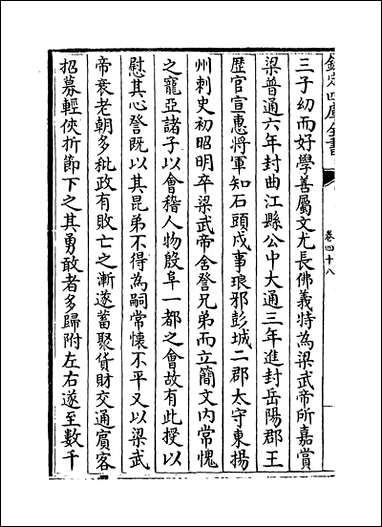 欽定四庫全書
卷四十八
三子幼而好學善屬文尤長佛義特為梁武帝所嘉賞
梁普通六年封曲江縣公中大通三年進封岳陽郡王
歴官宣惠將軍知石頭戍事琅邪彭城二郡太守東揚
州刺史初昭明卒梁武帝舍詧兄弟而立簡文内常愧
之寵亞諸子以會稽人物殷阜一都之會故有此授以
慰其心詧既以其昆弟不得為嗣常懷不平又以梁武
帝衰老朝多秕政有敗亡之漸遂蓄聚貨財交通賔客
招募輕俠折節下之其勇敢者多歸附左右遂至數千